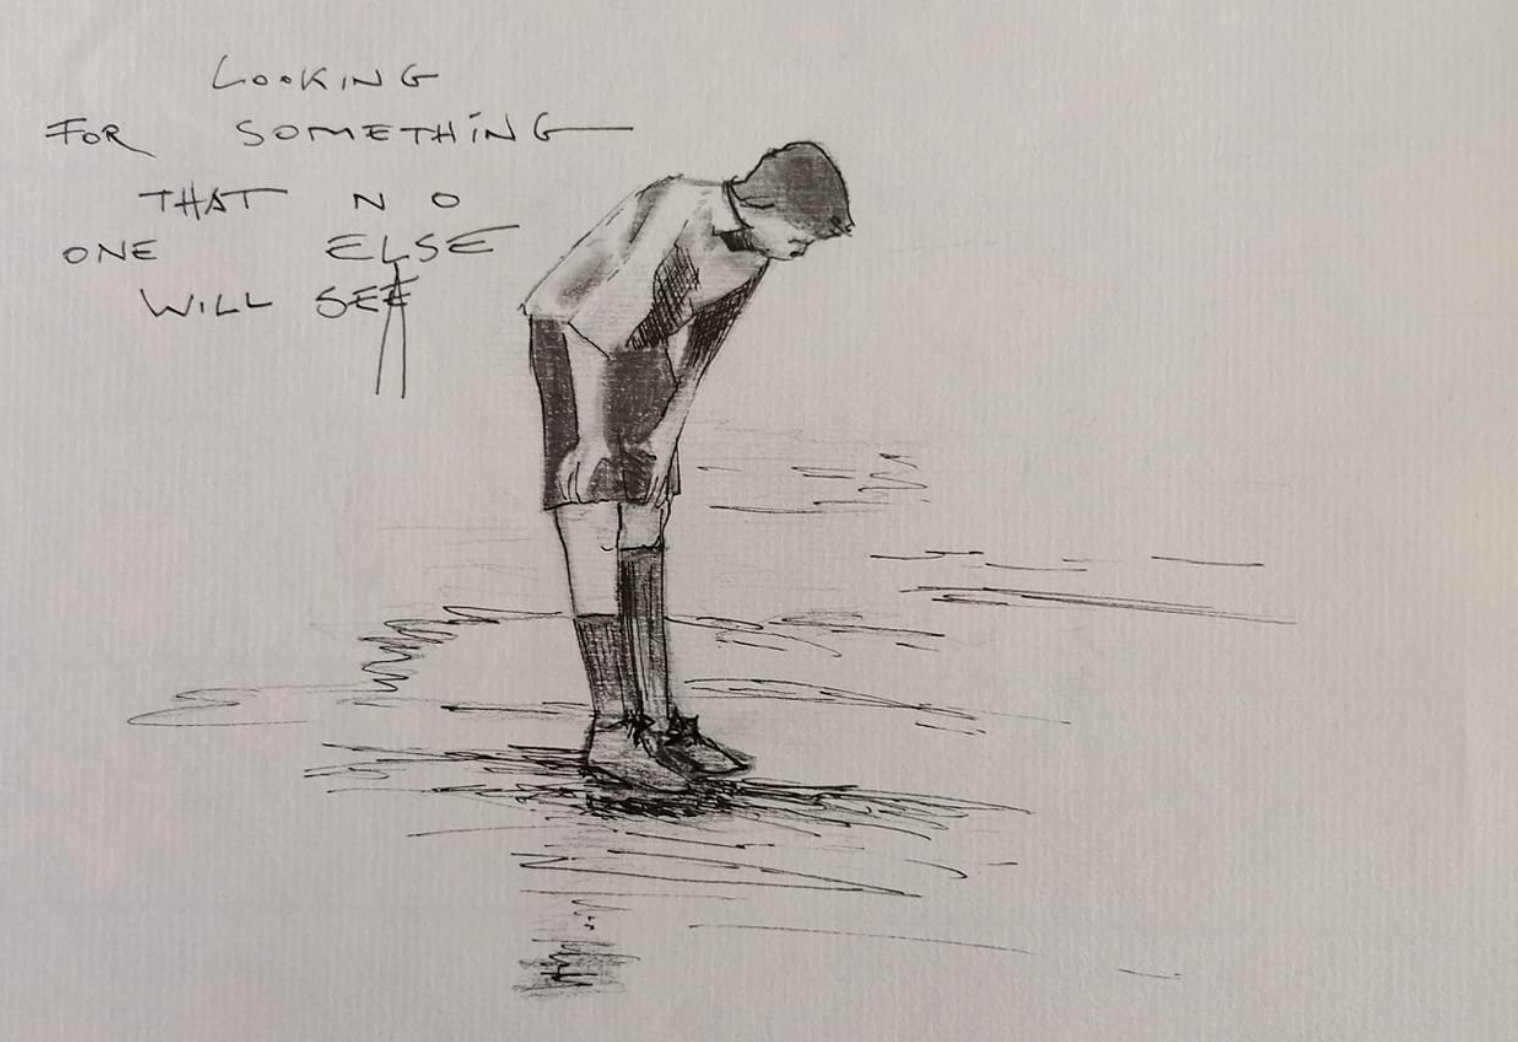 LOOKING
FOR SOMETHING
THAT NO
ONE ELSE
WILL SEE